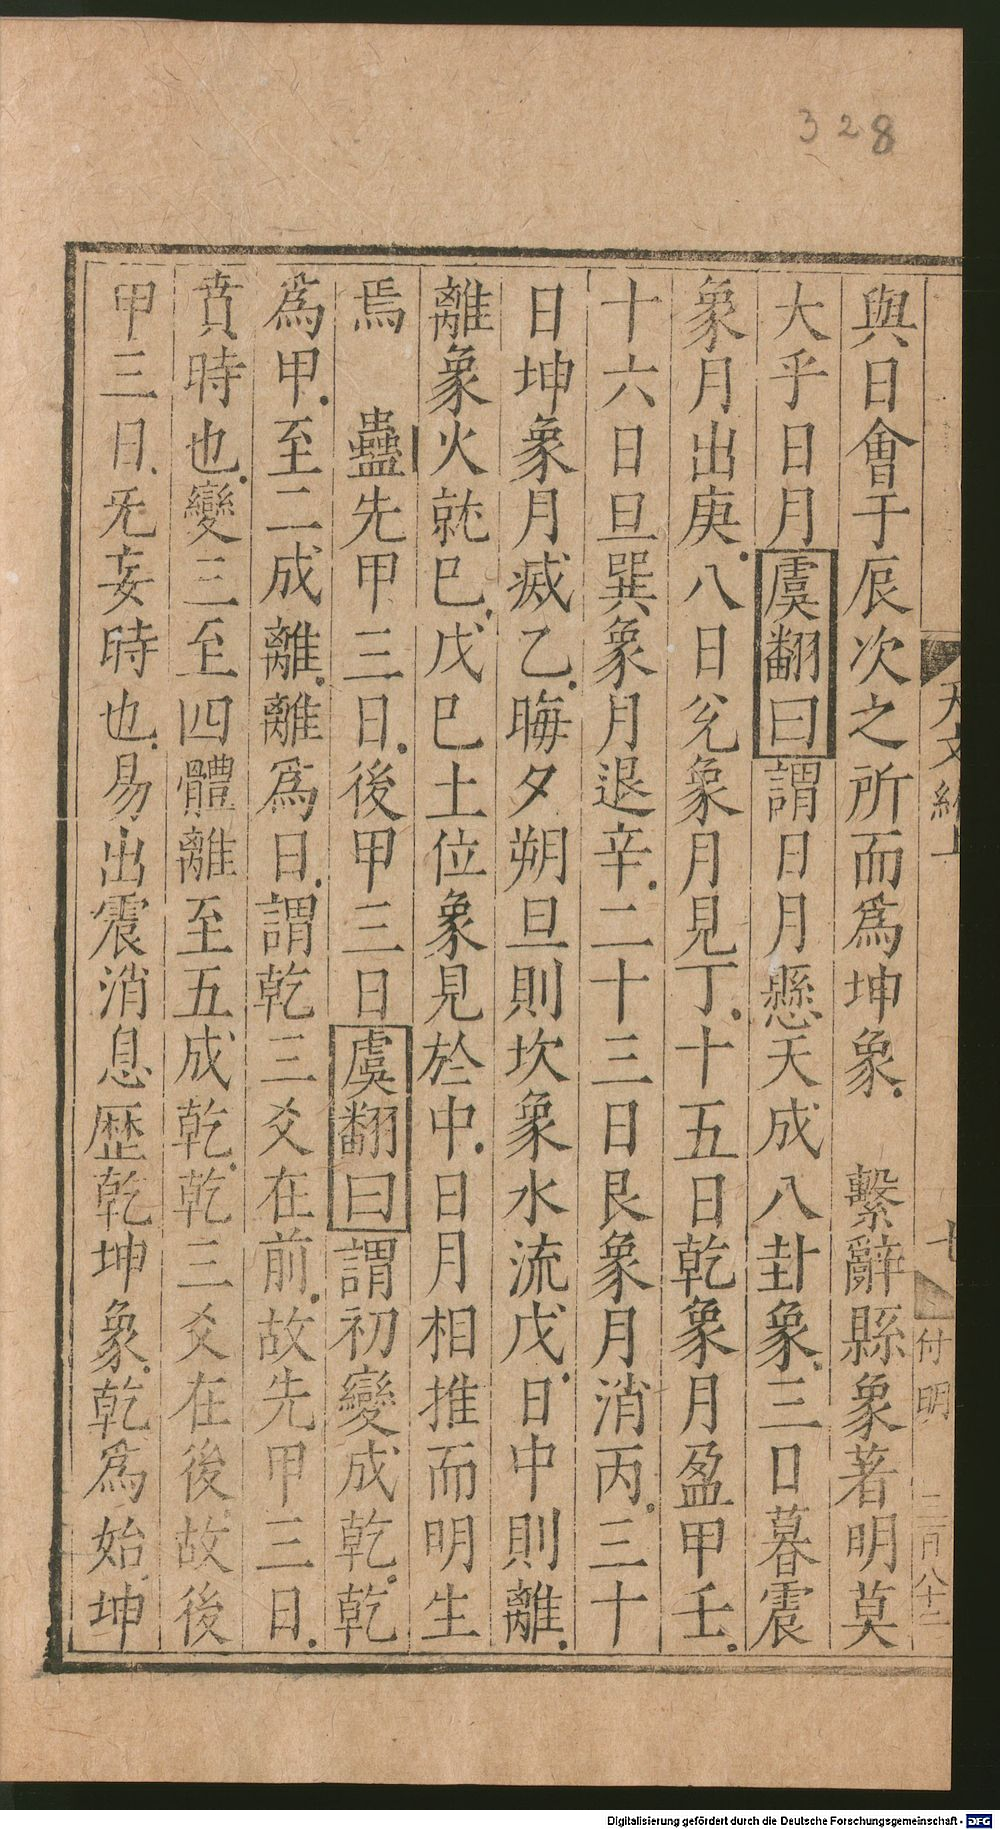 328
與日會于辰次之所而爲坤象．　繫辭縣象著明莫
大乎日月虞翻曰謂日月懸天成八卦象．三口暮震
象月出庚．八日兊象月見丁．十五日乾象月盈甲壬．
十六日旦巽象月退辛．二十三日艮象月消丙．三十
日坤象月滅乙．晦夕朔旦則坎象水流戊．日中則離．
離象火就巳．戊巳土位象見於中．日月相推而明生
焉　蠱先甲三日．後甲三日虞翻曰謂初變成乾．乾
爲甲．至二成離．離爲日．謂乾三爻在前．故先甲三日．
賁時也．變三至四體離至五成乾．乾三爻在後．故後
甲三日．旡妄時也．易出震消息歷乾坤象．乾爲始．坤
天文
七
付明
Digitalisierung gefördert durch die Deutsche Forschungsgemeinschaft - DFG